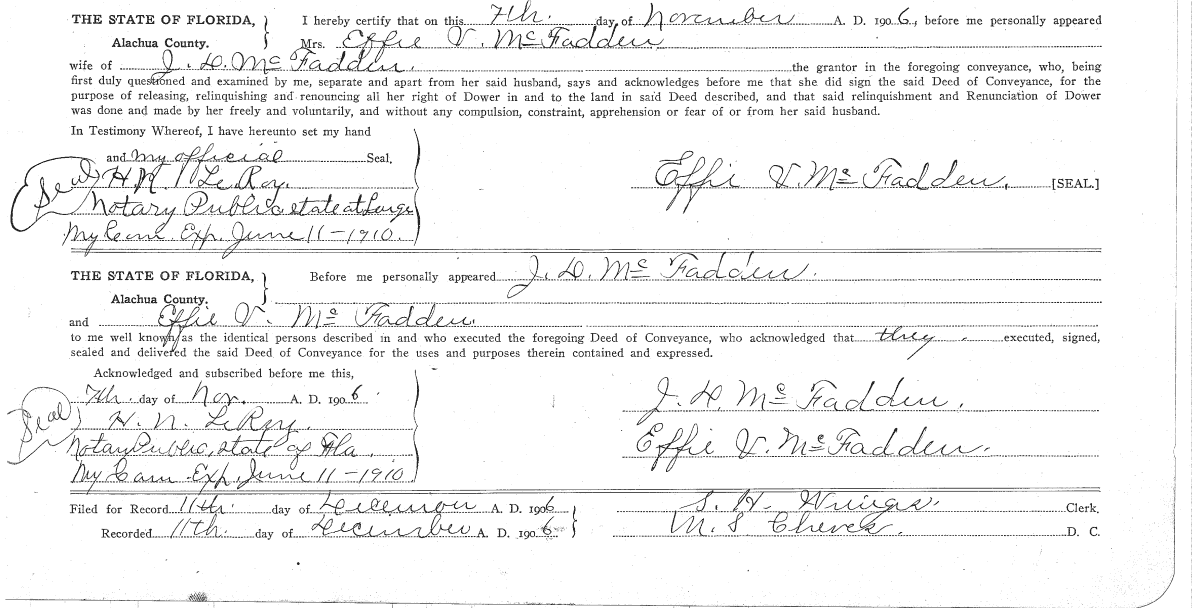 THE STATE OF FLORIDA, } I hereby certify that on this 7th. day of November A. D. 1906, before me personally appeared
Alachua County. Mrs. Effie V. McFadden
wife of J. D. McFadden. the grantor in the foregoing conveyance, who, being
first duly questioned and examined by me, separate and apart from her said husband, says and acknowledges before me that she did sign the said Deed of Conveyance, for the
purpose of releasing, relinquishing and renouncing all her right of Dower in and to the land in said Deed described, and that said relinquishment and Renunciation of Dower
was done and made by her freely and voluntarily, and without any compulsion, constraint, apprehension or fear of or from her said husband.
In Testimony Whereof, I have hereunto set my hand
and my official Seal.
(Seal) H. N. LeRoy. Effie V. McFadden. [SEAL.]
Notary Public state at Large
My Com. Exp. June 11-1910.
THE STATE OF FLORIDA, } Before me personally appeared J. D. McFadden.
Alachua County.
and Effie V. McFadden.
to me well known as the identical persons described in and who executed the foregoing Deed of Conveyance, who acknowledged that they executed, signed,
sealed and delivered the said Deed of Conveyance for the uses and purposes therein contained and expressed.
Acknowledged and subscribed before me this,
7th. day of Nov. A. D. 1906. J. D. McFadden.
(Seal) H. N. LeRoy.
Notary Public, state of Fla. Effie V. McFadden.
My Com. Exp. June 11-1910
Filed for Record 11th. day of December A. D. 1906 S. H. Clerk.
Recorded 11th. day of December A. D. 1906 M. S. D. C.